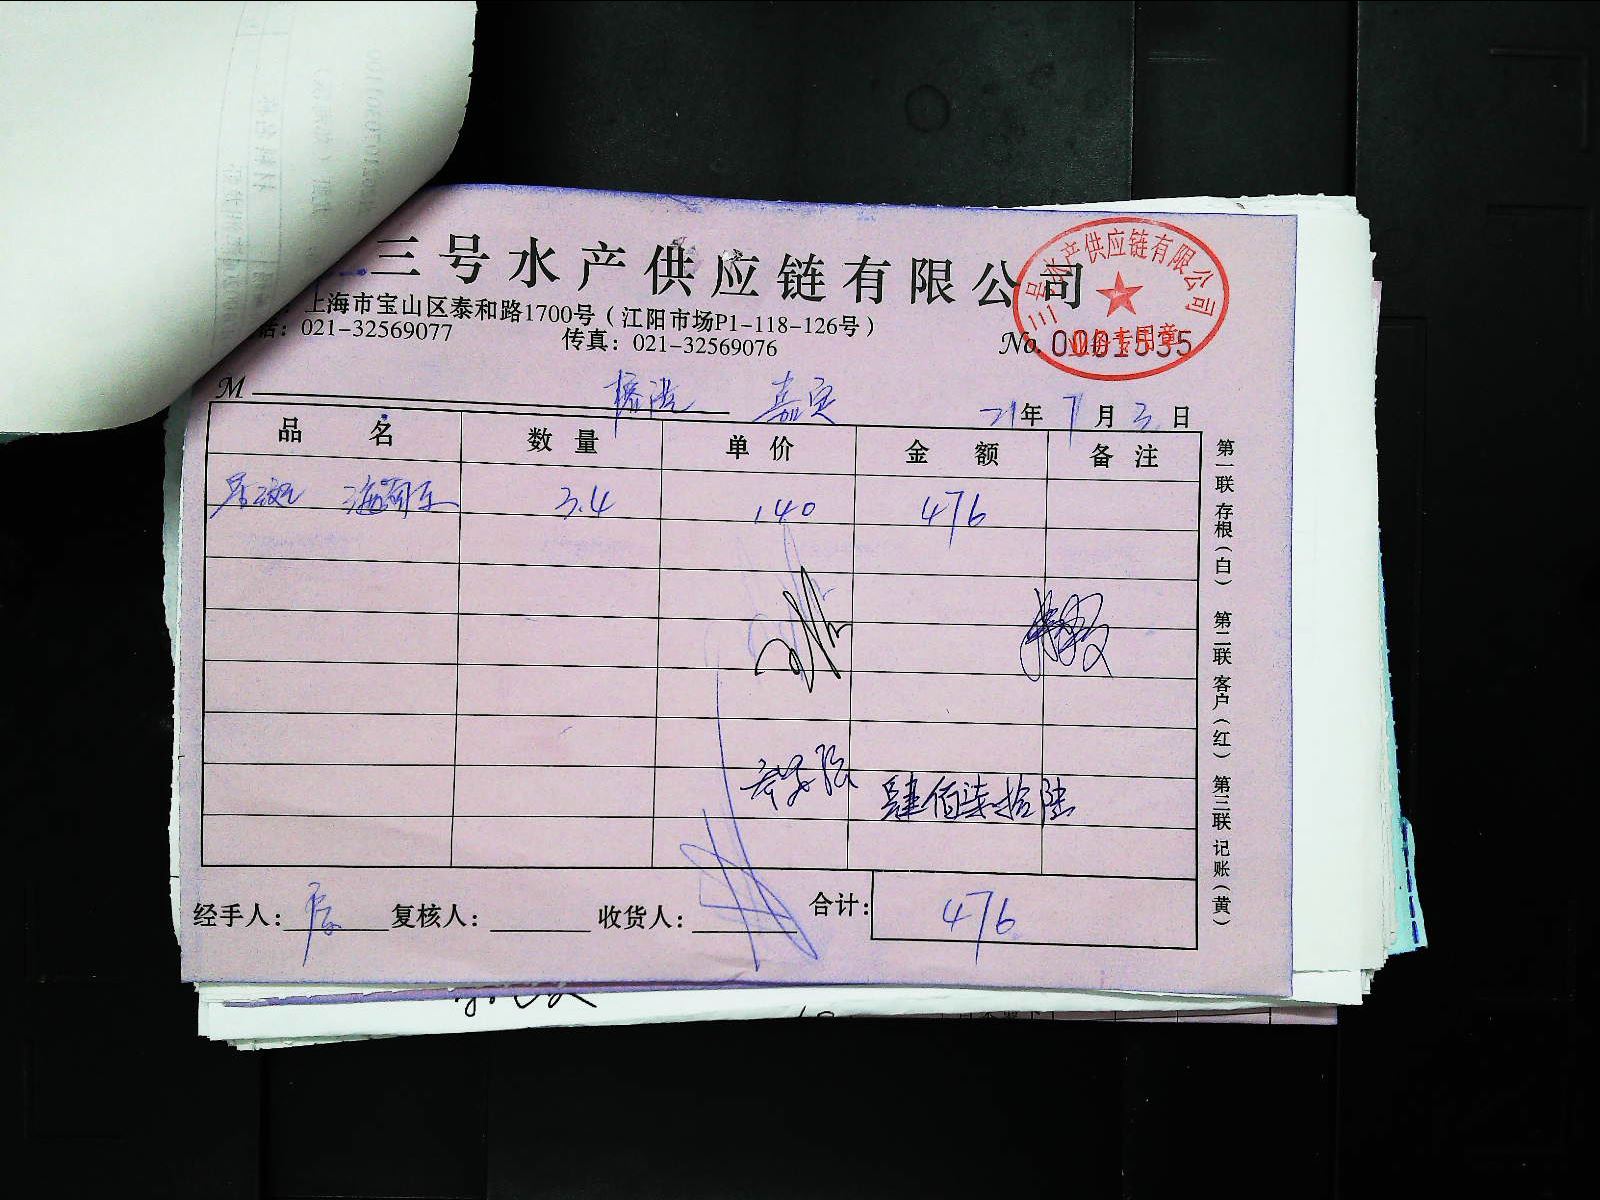 三号水产供应链有限公司
上海市宝山区泰和路1700号（江阳市场P1-118-126号）
话：021-32569077 传真：021-32569076
No. 0001535
三号水产供应链有限公司
业务专用章
M 嘉定 21年7月3日
品名 数量 单价 金额 备注
3.4 140 476
肆佰柒拾陆
经手人： 复核人： 收货人： 合计： 476
第一联 存根（白） 第二联 客户（红） 第三联 记账（黄）